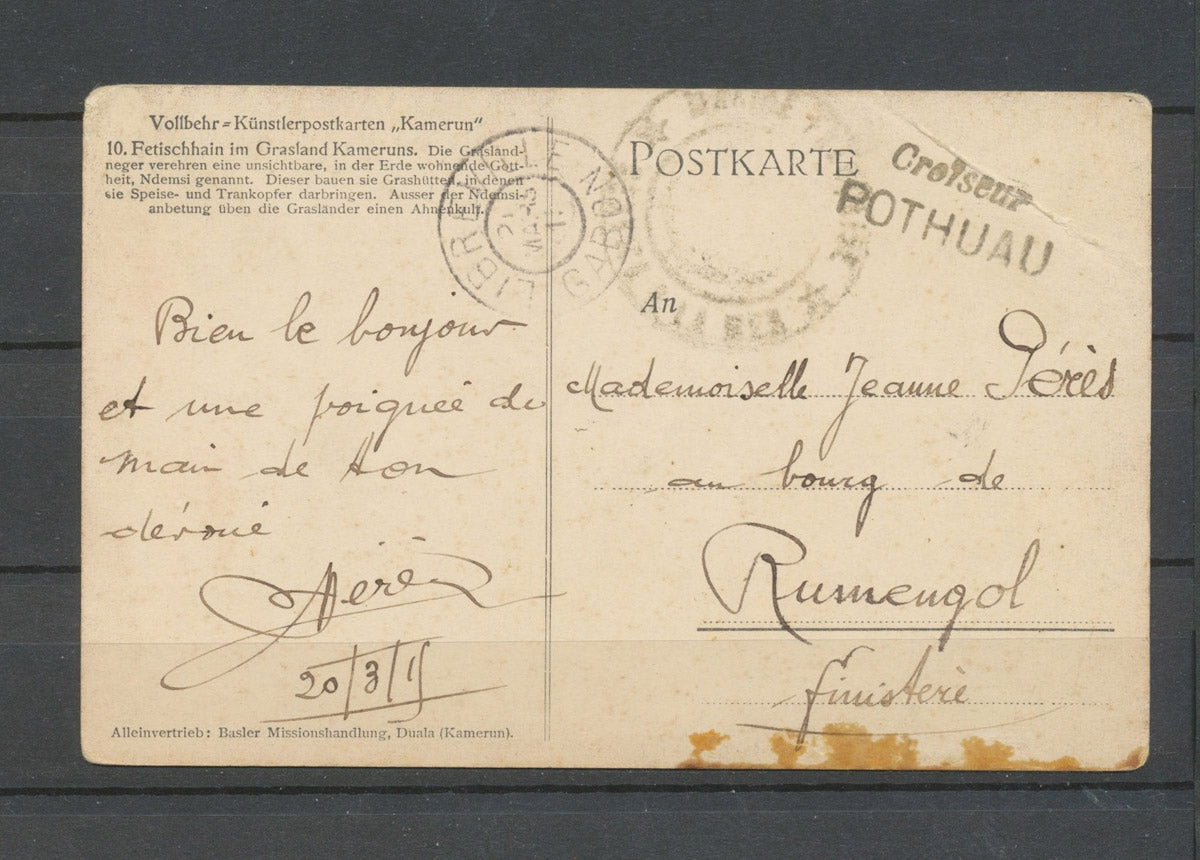 Vollbehr=Künstlerpostkarten „Kamerun"
10. Fetischhain im Grasland Kameruns. Die Grasland-
neger verehren eine unsichtbare, in der Erde wohnende Gott-
heit, Ndemsi genannt. Dieser bauen sie Grashütten, in denen
sie Speise- und Trankopfer darbringen. Ausser der Ndemsi-
anbetung üben die Grasländer einen Ahnenkult.
LIBREVILLE
21
MARS
GABON
POSTKARTE
Croiseur
POTHUAU
An
Bien le bonjour
et une poignée de
main de ton
dévoué
20/3/15
Mademoiselle Jeanne Pérès
au bourg de
Rumengol
finistère
Alleinvertrieb: Basler Missionshandlung, Duala (Kamerun).